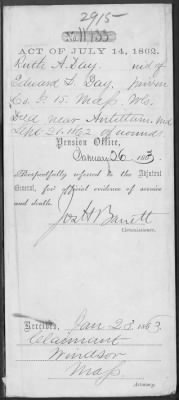 2915
No. 11133
ACT OF JULY 14, 1862.
Ruth A. Day, wid of
Edward L. Day, private
Co. F 15 Mass. Vols.
Died near Antietam, Md
Sept. 21. 1862 of wounds.
Pension Office,
January 26, 1863.
Respectfully referred to the Adjutant
General, for official evidence of service
and death.
Jos. H. Barrett
Commissioner.
Received, Jan 28 1863.
Claimant
Windsor
Mass.
Attorney.